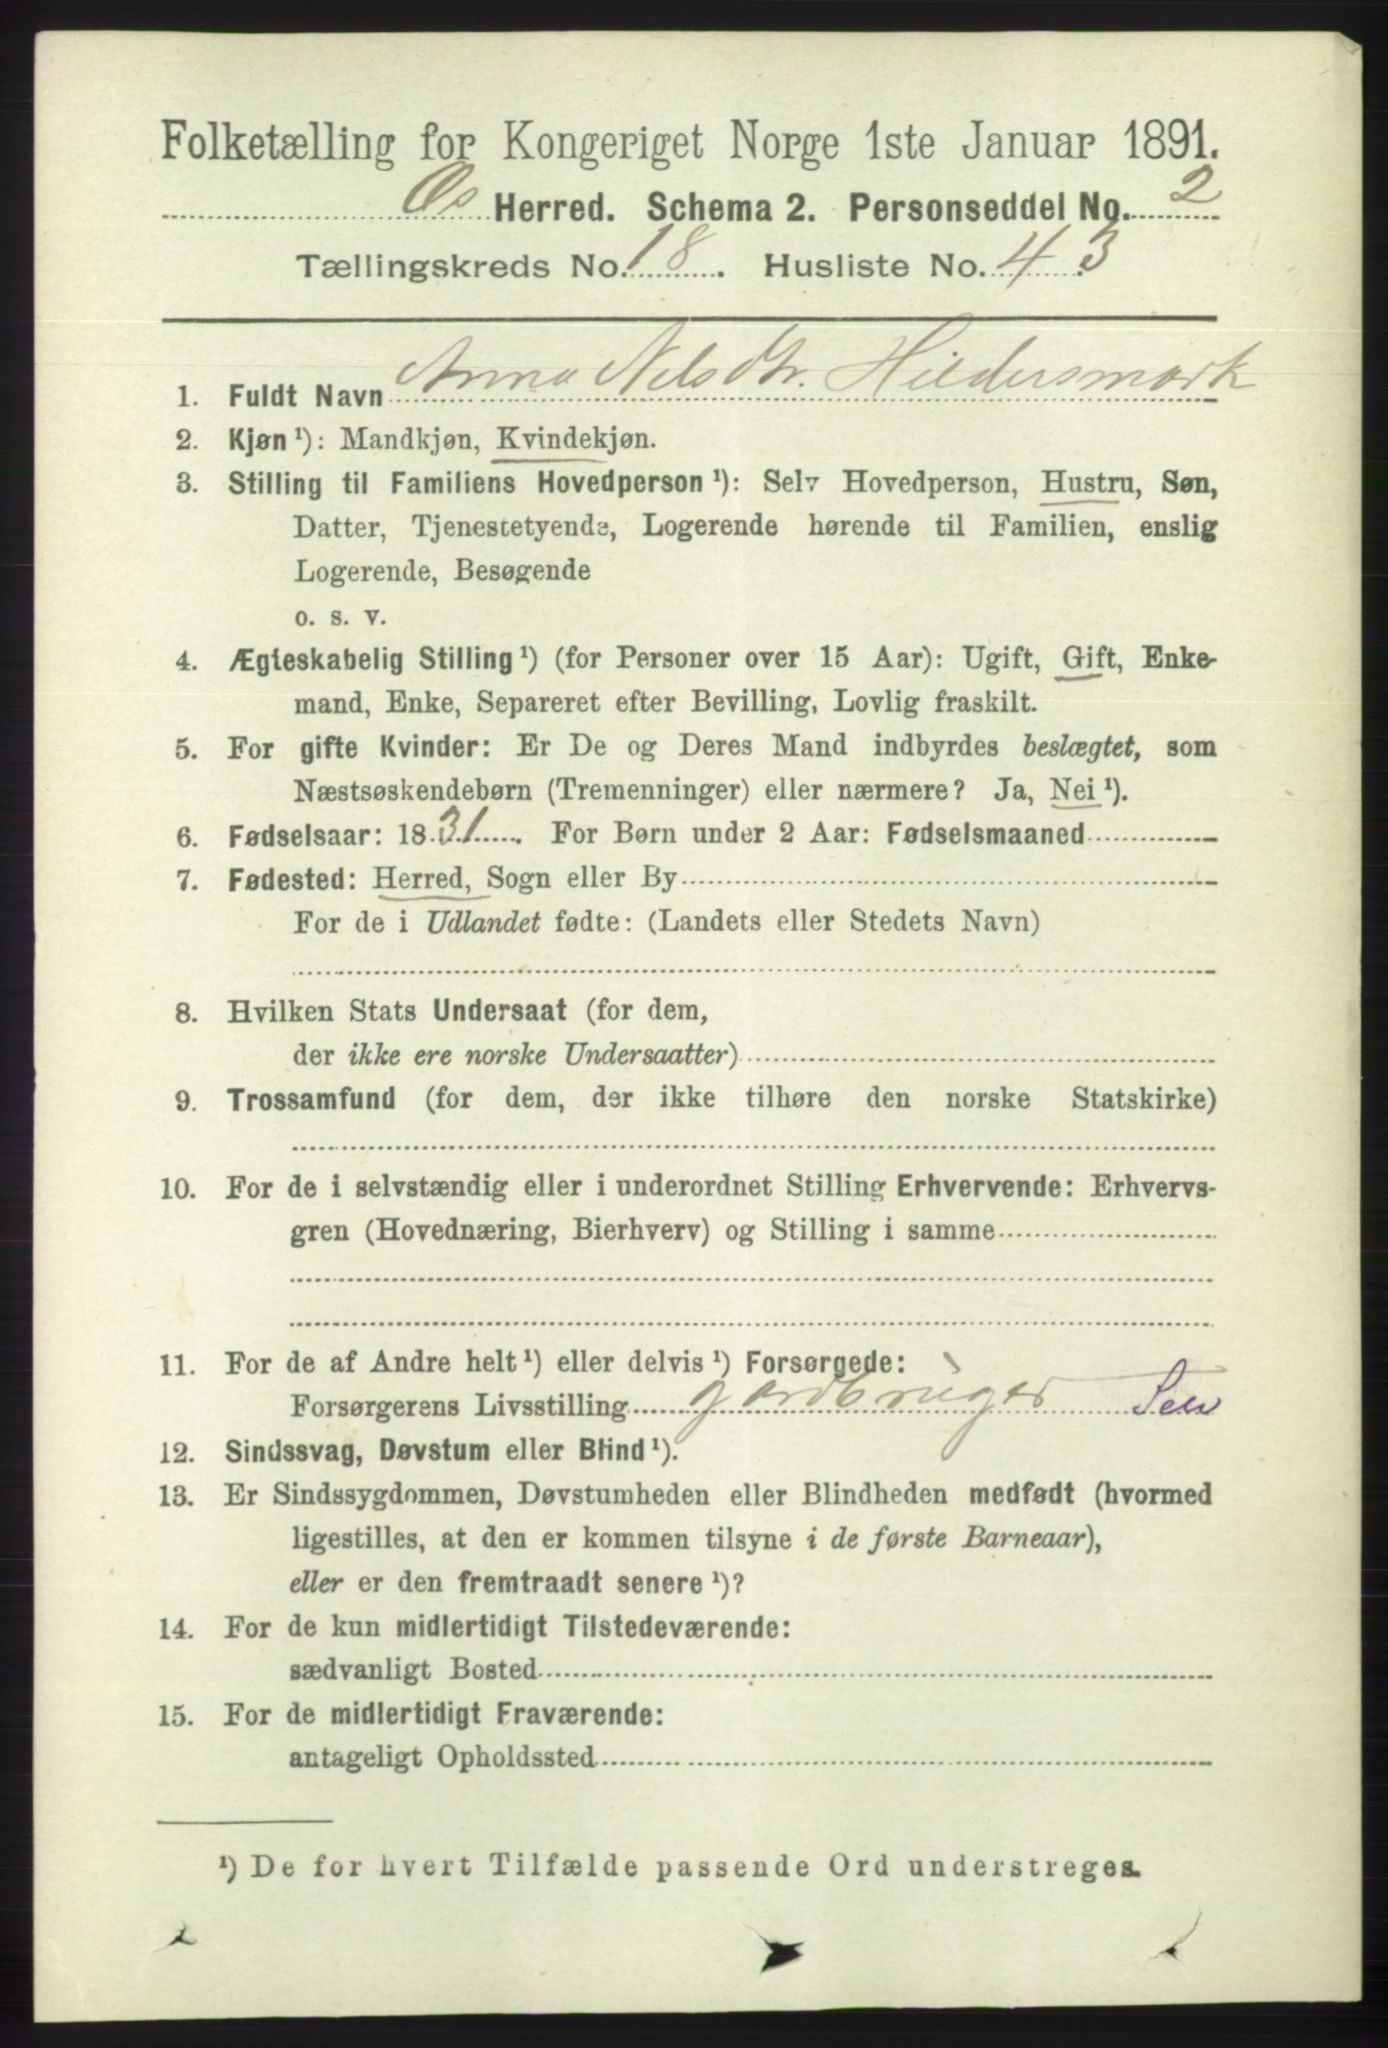 Folketælling for Kongeriget Norge 1ste Januar 1891.
Os Herred. Schema 2. Personseddel No. 2
Tællingskreds No. 18. Husliste No. 43
1. Fuldt Navn Anna Nelsdtr. Hildersmark
2. Kjøn¹): Mandkjøn, Kvindekjøn.
3. Stilling til Familiens Hovedperson¹): Selv Hovedperson, Hustru, Søn,
Datter, Tjenestetyende, Logerende hørende til Familien, enslig
Logerende, Besøgende
o. s. v.
4. Ægteskabelig Stilling¹) (for Personer over 15 Aar): Ugift, Gift, Enke-
mand, Enke, Separeret efter Bevilling, Lovlig fraskilt.
5. For gifte Kvinder: Er De og Deres Mand indbyrdes beslægtet, som
Næstsøskendebørn (Tremenninger) eller nærmere? Ja, Nei¹).
6. Fødselsaar: 1831. For Børn under 2 Aar: Fødselsmaaned
7. Fødested: Herred, Sogn eller By
For de i Udlandet fødte: (Landets eller Stedets Navn)
8. Hvilken Stats Undersaat (for dem,
der ikke ere norske Undersaatter)
9. Trossamfund (for dem, der ikke tilhøre den norske Statskirke)
10. For de i selvstændig eller i underordnet Stilling Erhvervende: Erhvervs-
gren (Hovednæring, Bierhverv) og Stilling i samme
11. For de af Andre helt¹) eller delvis¹) Forsørgede:
Forsørgerens Livsstilling gardbruger Selv
12. Sindssvag, Døvstum eller Blind¹).
13. Er Sindssygdommen, Døvstumheden eller Blindheden medfødt (hvormed
ligestilles, at den er kommen tilsyne i de første Barneaar),
eller er den fremtraadt senere¹)?
14. For de kun midlertidigt Tilstedeværende:
sædvanligt Bosted
15. For de midlertidigt Fraværende:
antageligt Opholdssted
¹) De for hvert Tilfælde passende Ord understreges.